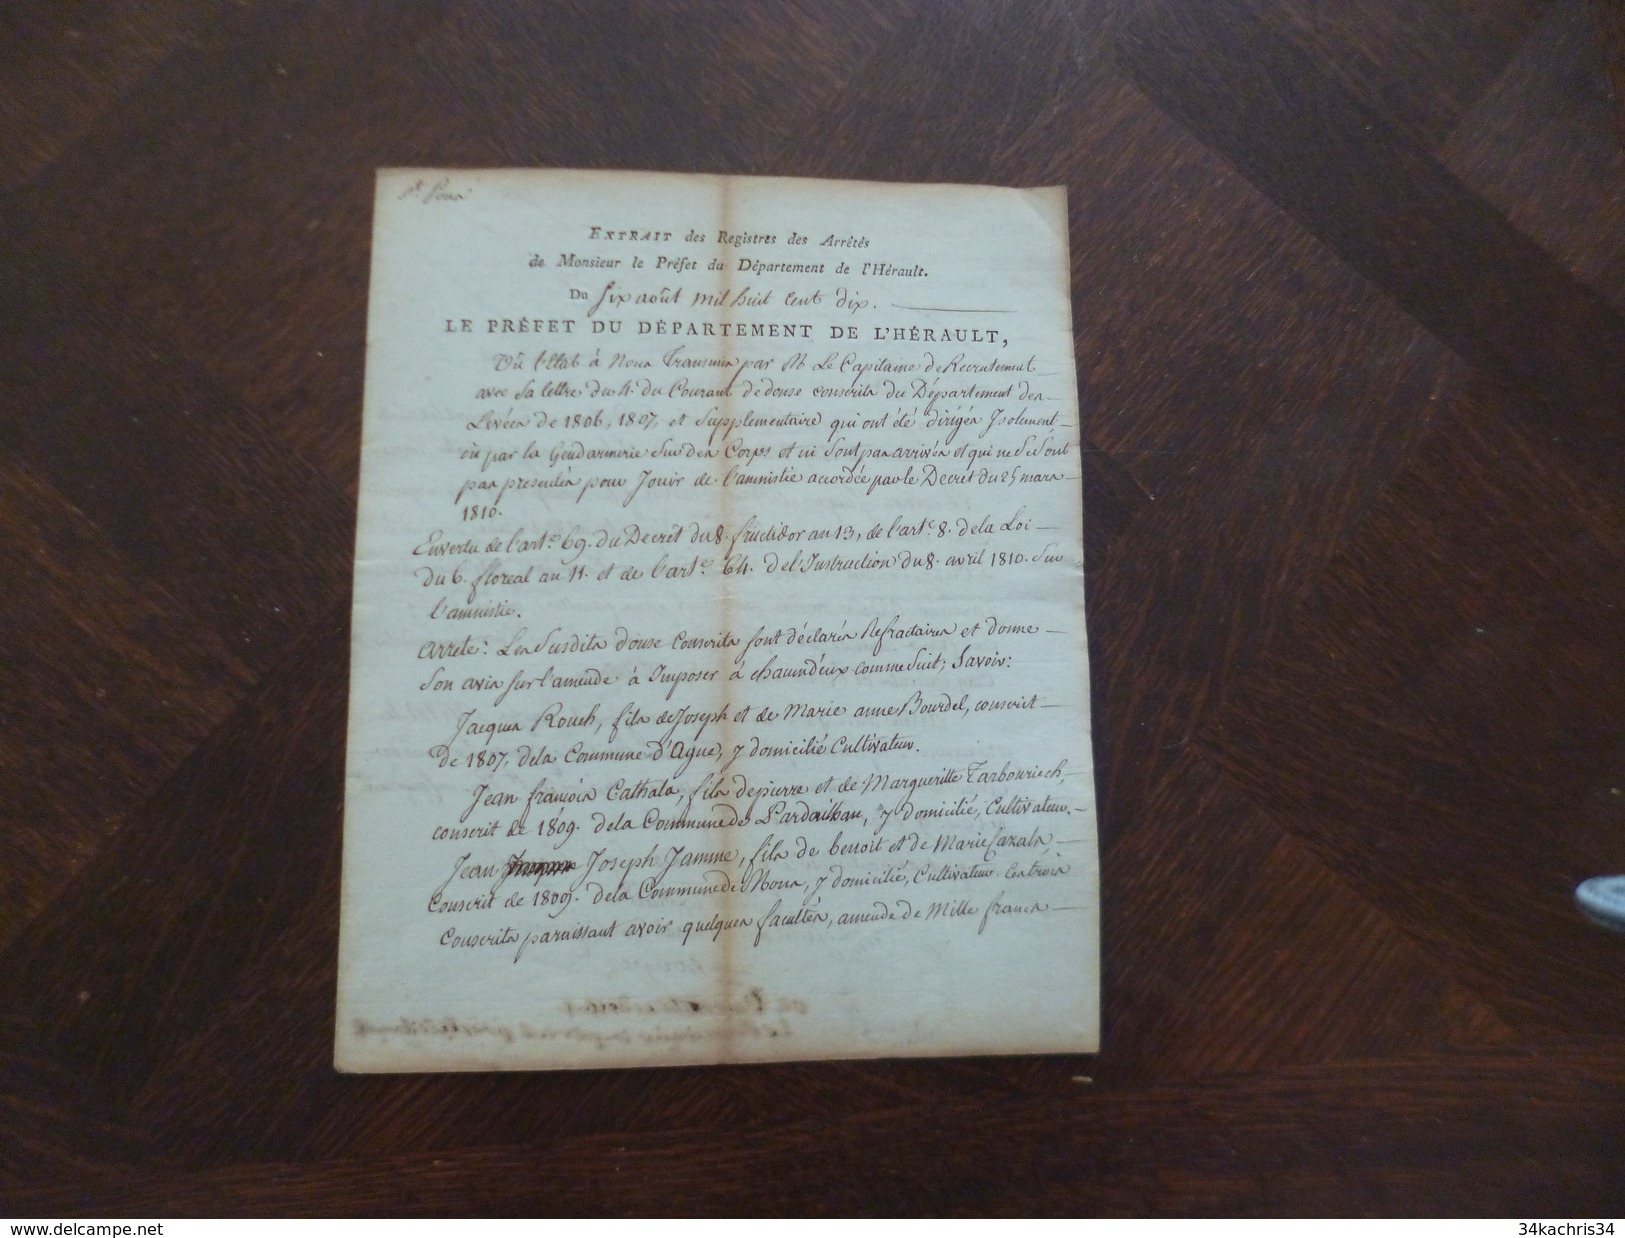 St. Pons
EXTRAIT des Registres des Arrêtés
de Monsieur le Préfet du Département de l'Hérault.
Du six août mil huit cent dix.
LE PRÉFET DU DÉPARTEMENT DE L'HÉRAULT,
Vû l'Etat à Nous Transmis par Mr Le Capitaine de Recrutement
avec Sa lettre du 4. du Courant de douse conscrits du Département des
Levées de 1806, 1807, et Supplementaire qui ont été dirigés Isolement
ou par la Gendarmerie Sur des Corps et ni Sont pas arrivés et qui ne Se Sont
pas presentés pour Jouir de l'amnistie accordée par le Decret du 25 mars
1810.
En vertu de l'art.e 69. du Decret du 8. fructidor an 13, de l'art.e 8. de la Loi
du 6. floreal an 11. et de l'art.e 64. de l'Instruction du 8. avril 1810. Sur
l'amnistie.
arrete: Les Susdits douse Conscrits sont déclarés Refractaires et donne
Son avis sur l'amende à Imposer à chacun d'eux comme Suit; Savoir:
Jacques Rouch, fils de Joseph et de Marie anne Bourdel, conscrit
de 1807, de la Commune d'Agne, y domicilié Cultivateur.
Jean françois Cathala, fils de pierre et de Margueritte Tarbouriech,
conscrit de 1809. de la Commune de Pardailhan, y domicilié, Cultivateur.
Jean Joseph Jamme, fils de benoit et de Marie Cazals,
Conscrit de 1809. de la Commune de Mons, y domicilié, Cultivateur. Les trois
Conscrits paraissant avoir quelques facultés, amende de Mille francs
www.delcampe.net
34kachris34